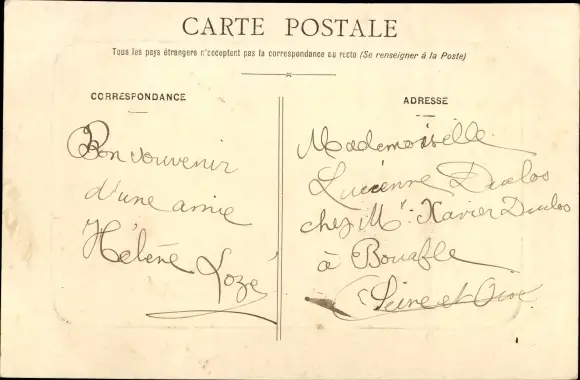 CARTE POSTALE
Tous les pays étrangers n'acceptent pas la correspondance au recto (Se renseigner à la Poste)
CORRESPONDANCE
Bon souvenir
d'une amie
Hélène Lozé
ADRESSE
Mademoiselle
Lucienne Duclos
chez Mr Xavier Duclos
à Bouafle
(Seine et Oise